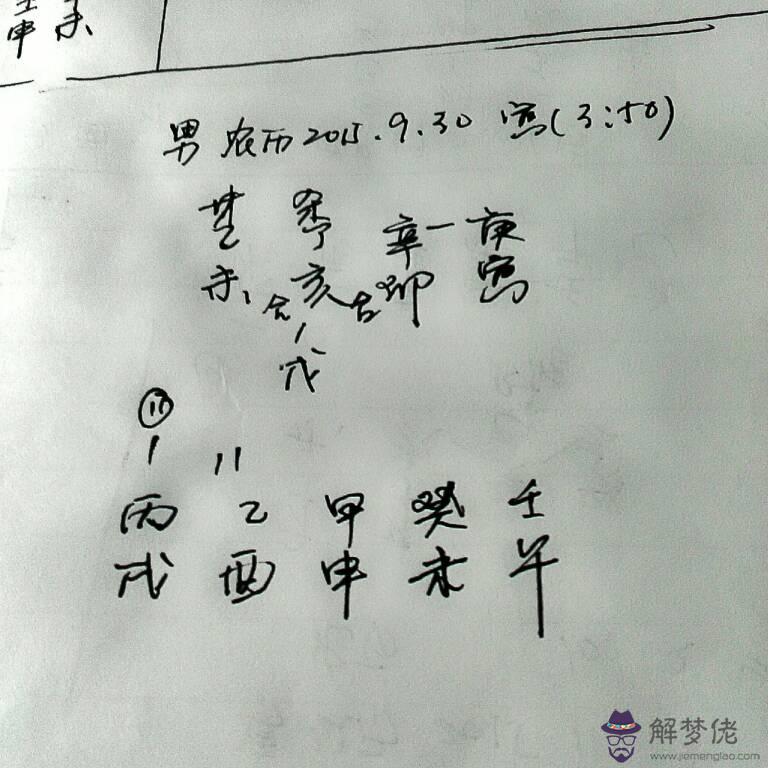 申 未
男 农历2015.9.30 寅(3:50)
乙 丁 辛一庚
未 合 亥 合 卯 寅
戌
11
丙 乙 甲 癸 壬
戌 酉 申 未 午
解梦佬
www.jiemenglao.com